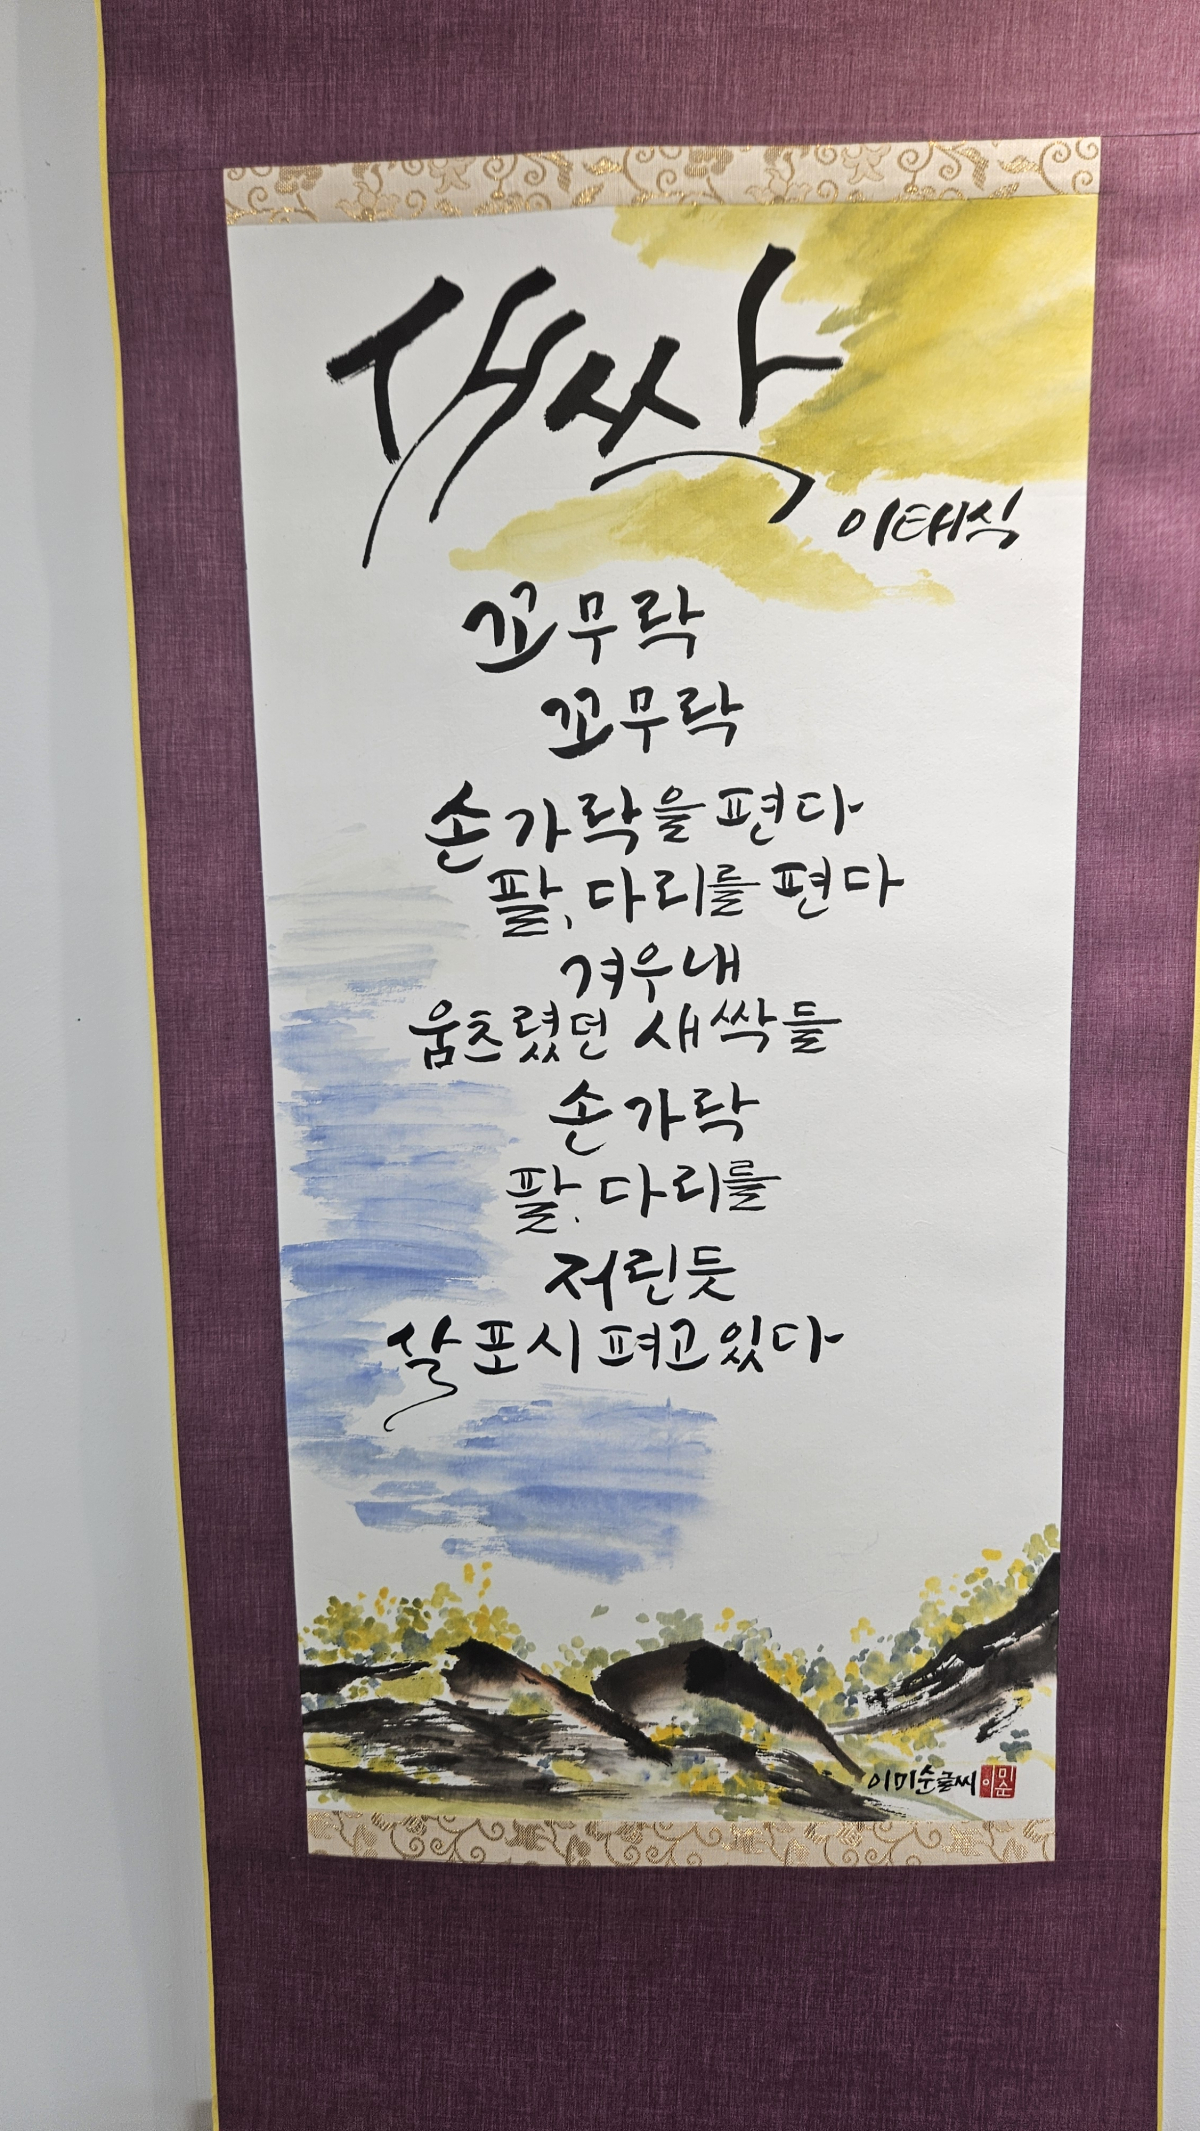 새싹
이태식
꼬무락
꼬무락
손가락을 편다
팔, 다리를 편다
겨우내
움츠렸던 새싹들
손가락
팔, 다리를
저린듯
살포시 펴고 있다
이미순글씨
이미순